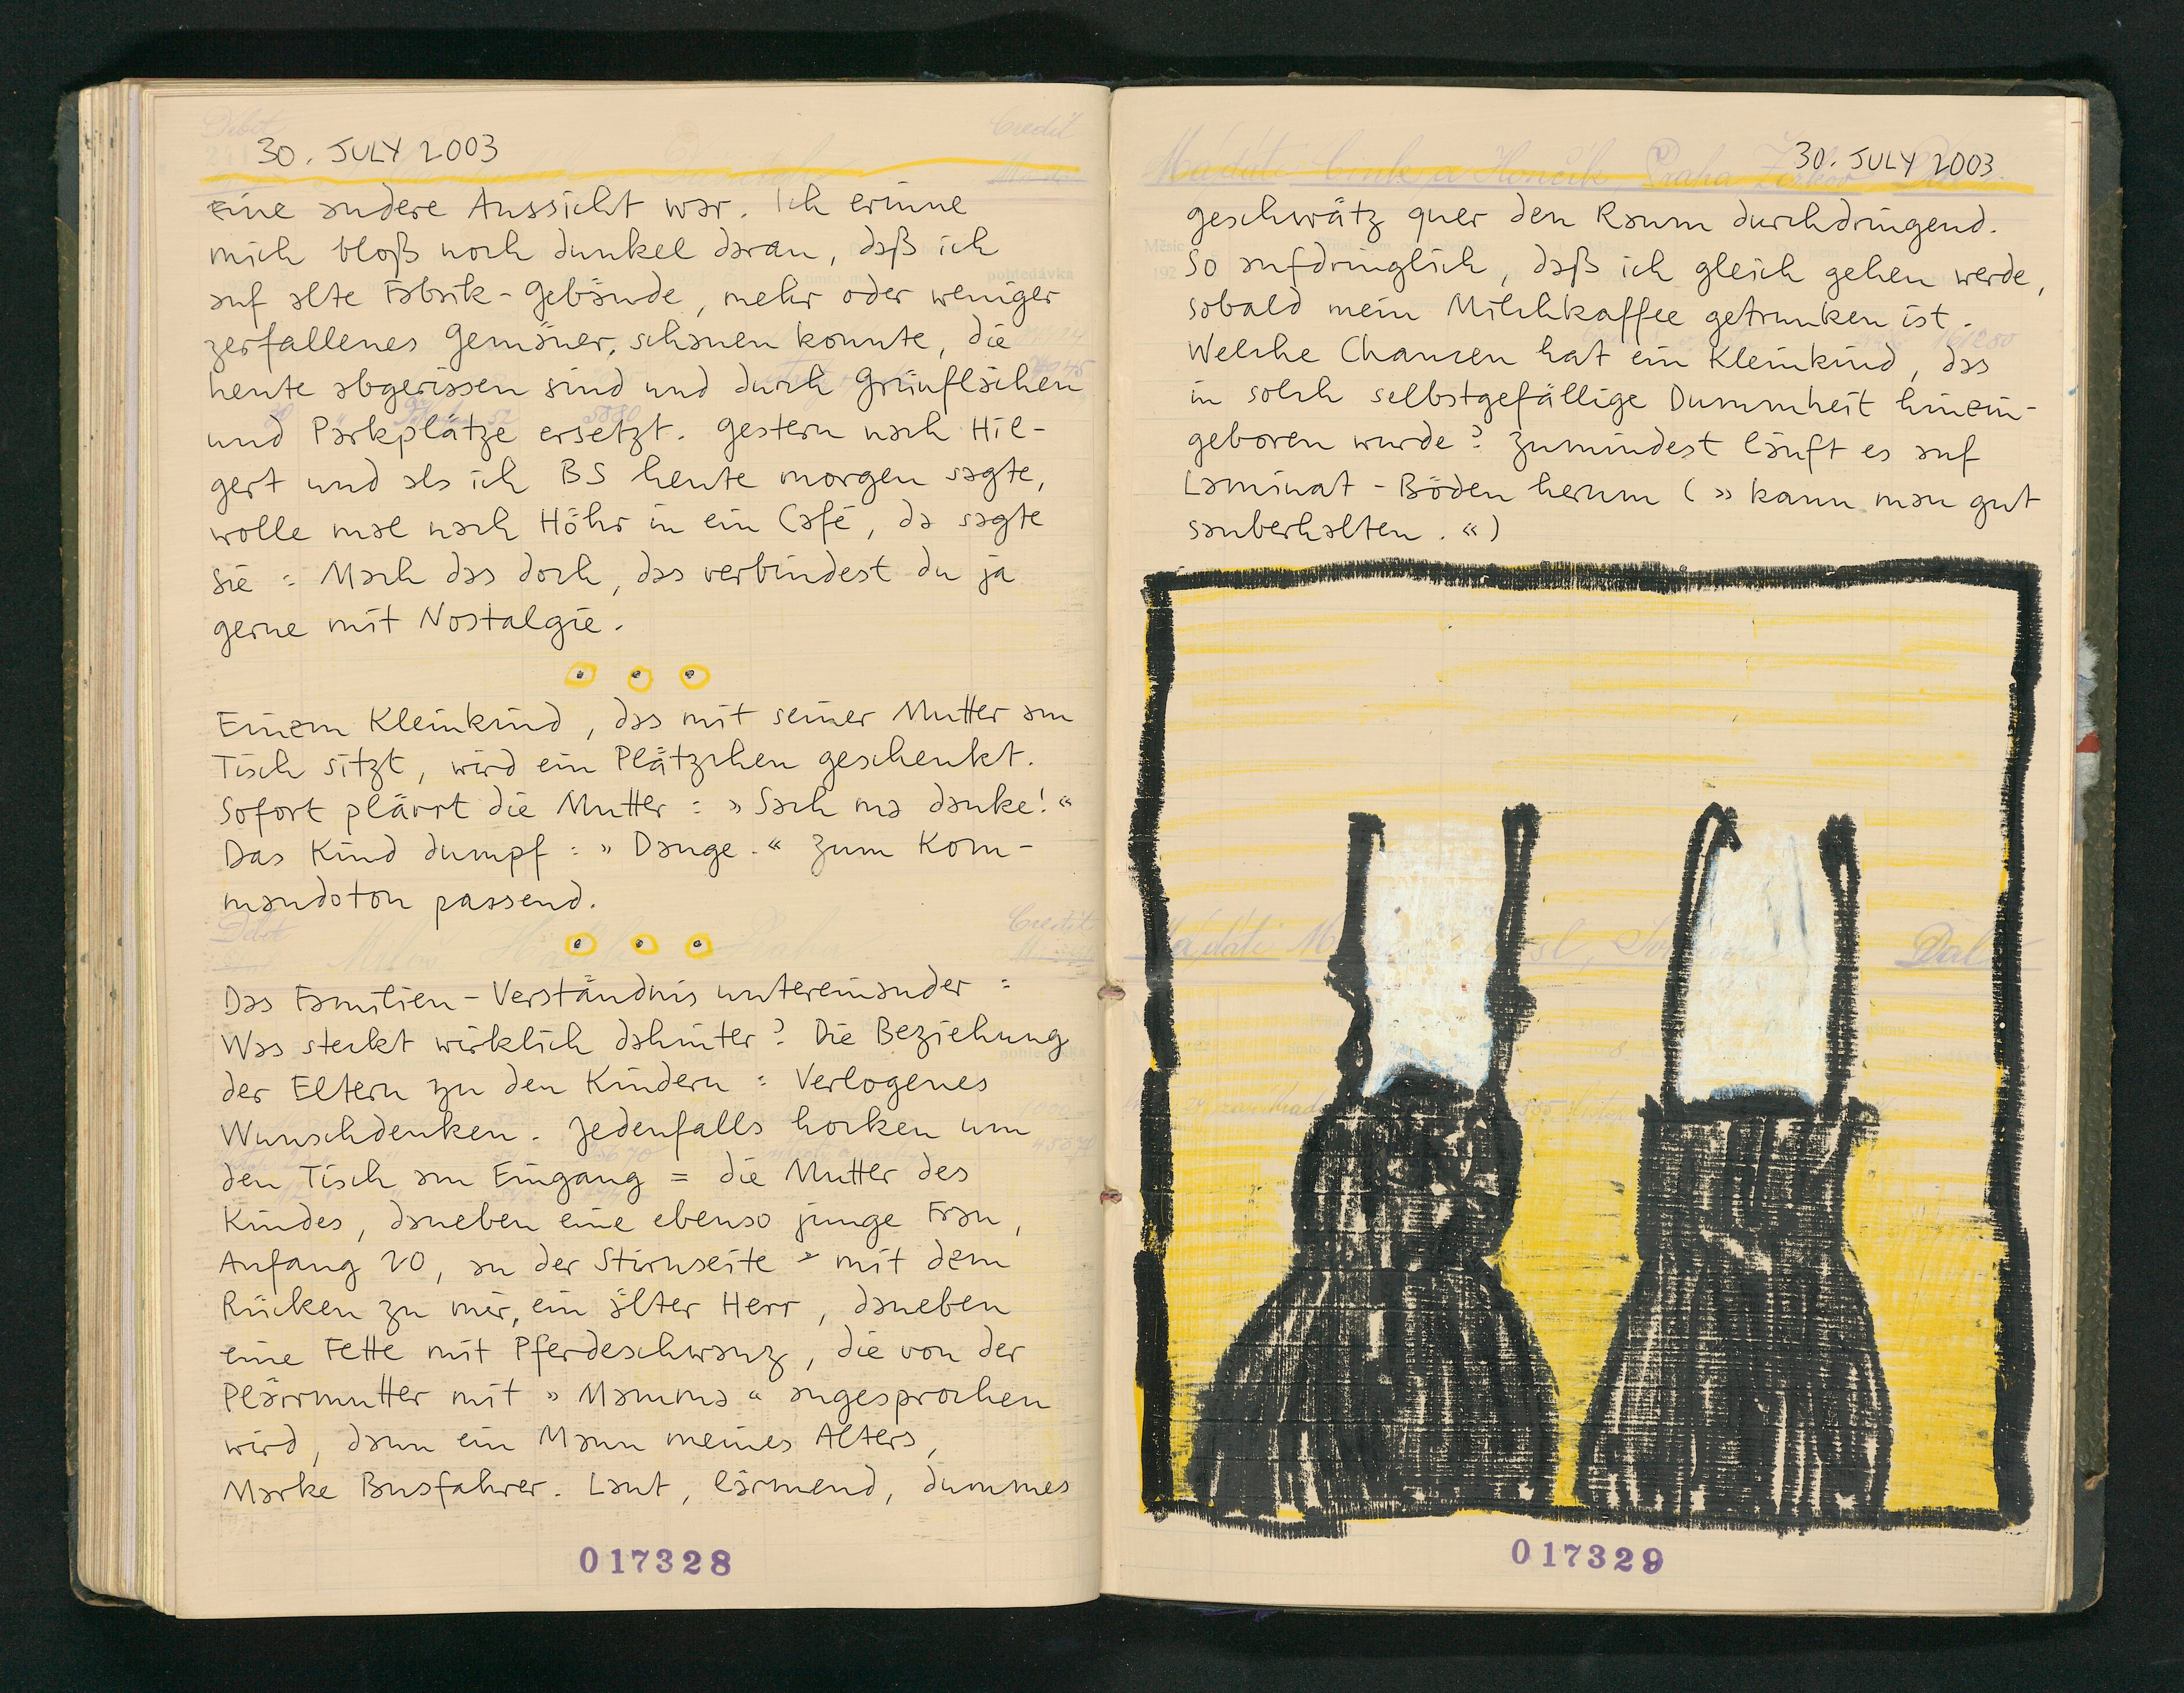 30. JULY 2003
Eine andere Aussicht war. Ich erinne
mich bloß noch dunkel daran, daß ich
auf alte Fabrik-Gebäude, mehr oder weniger
zerfallenes Gemäuer, schauen konnte, die
heute abgerissen sind und durch Grünflächen
und Parkplätze ersetzt. Gestern nach Hil-
gert und als ich BS heute morgen sagte,
wolle mal nach Höhr in ein Café, da sagte
sie: Mach das doch, das verbindest du ja
gerne mit Nostalgie.
Einem Kleinkind, das mit seiner Mutter am
Tisch sitzt, wird ein Plätzchen geschenkt.
Sofort plärrt die Mutter: »Sach ma danke!«
Das Kind dumpf: »Dange.« Zum Kom-
mandoton passend.
Debit
Credit
Das Familien-Verständnis untereinander:
Was steckt wirklich dahinter? Die Beziehung
der Eltern zu den Kindern: Verlogenes
Wunschdenken. Jedenfalls hocken um
den Tisch am Eingang = die Mutter des
Kindes, daneben eine ebenso junge Frau,
Anfang 20, an der Stirnseite - mit dem
Rücken zu mir, ein älter Herr, daneben
eine Fette mit Pferdeschwanz, die von der
Plärrmutter mit »Mamma« angesprochen
wird, dann ein Mann meines Alters,
Marke Busfahrer. Laut, lärmend, dummes
017328
30. JULY 2003
geschwätz quer den Raum durchdringend.
So aufdringlich, daß ich gleich gehen werde,
sobald mein Milchkaffee getrunken ist.
Welche Chancen hat ein Kleinkind, das
in solch selbstgefällige Dummheit hinein-
geboren wurde? Zumindest läuft es auf
Laminat-Böden herum (»kann man gut
sauberhalten.«)
017329